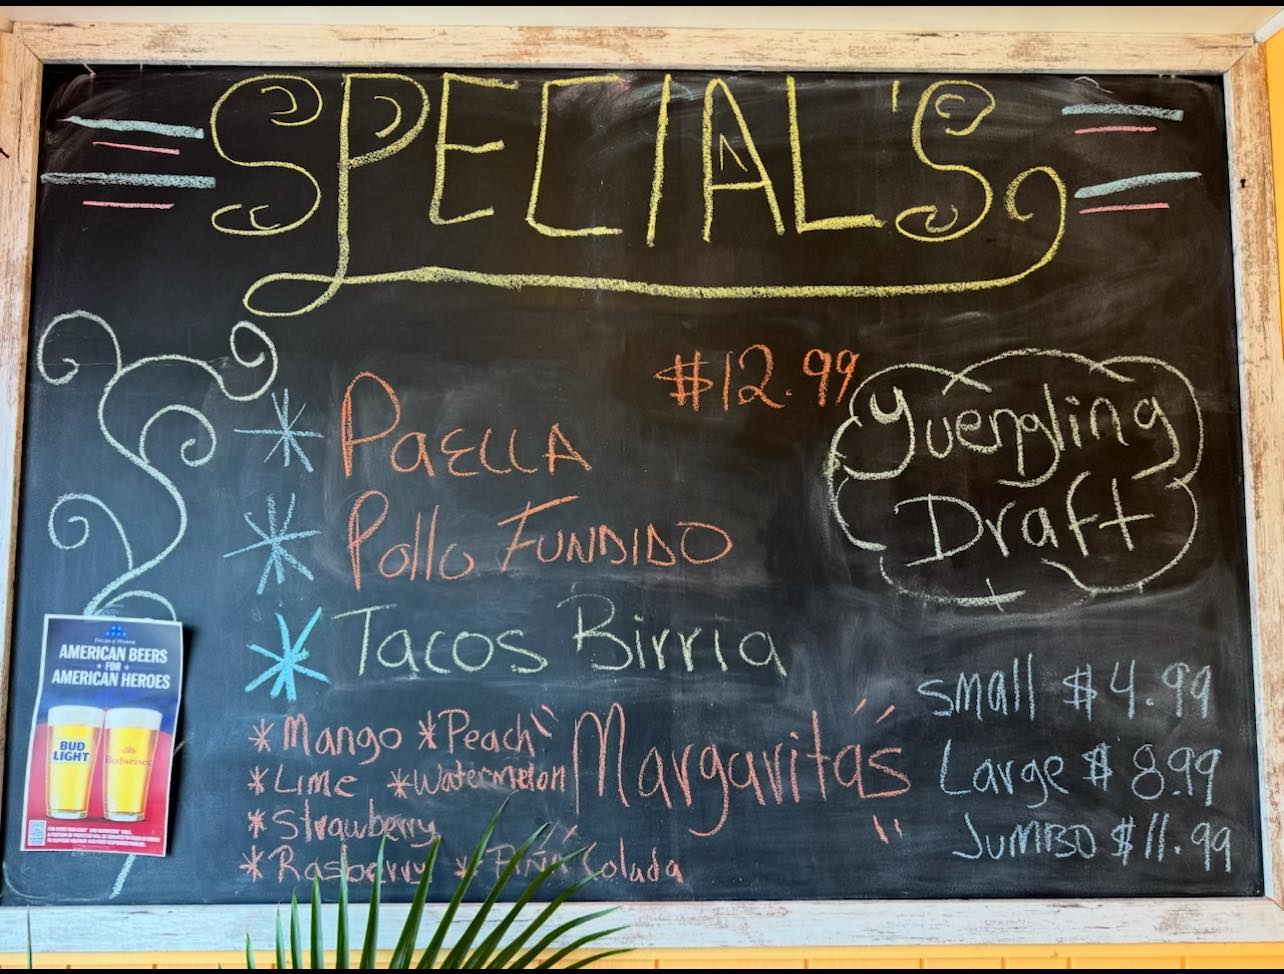 SPECIAL'S
$12.99
* PaELLA
* Pollo FUNDIDO
* Tacos Birria
Yuengling
Draft
* Mango * Peach
* Lime * Watermelon
* Strawberry
* Rasberry * Piña Colada
"Margaritas"
small $4.99
Large $8.99
Jumbo $11.99
AMERICAN BEERS
FOR
AMERICAN HEROES
BUD
LIGHT
Budweiser